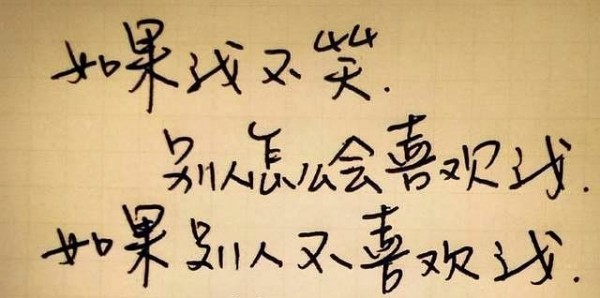 如果我不笑.
别人怎么会喜欢我.
如果别人不喜欢我.